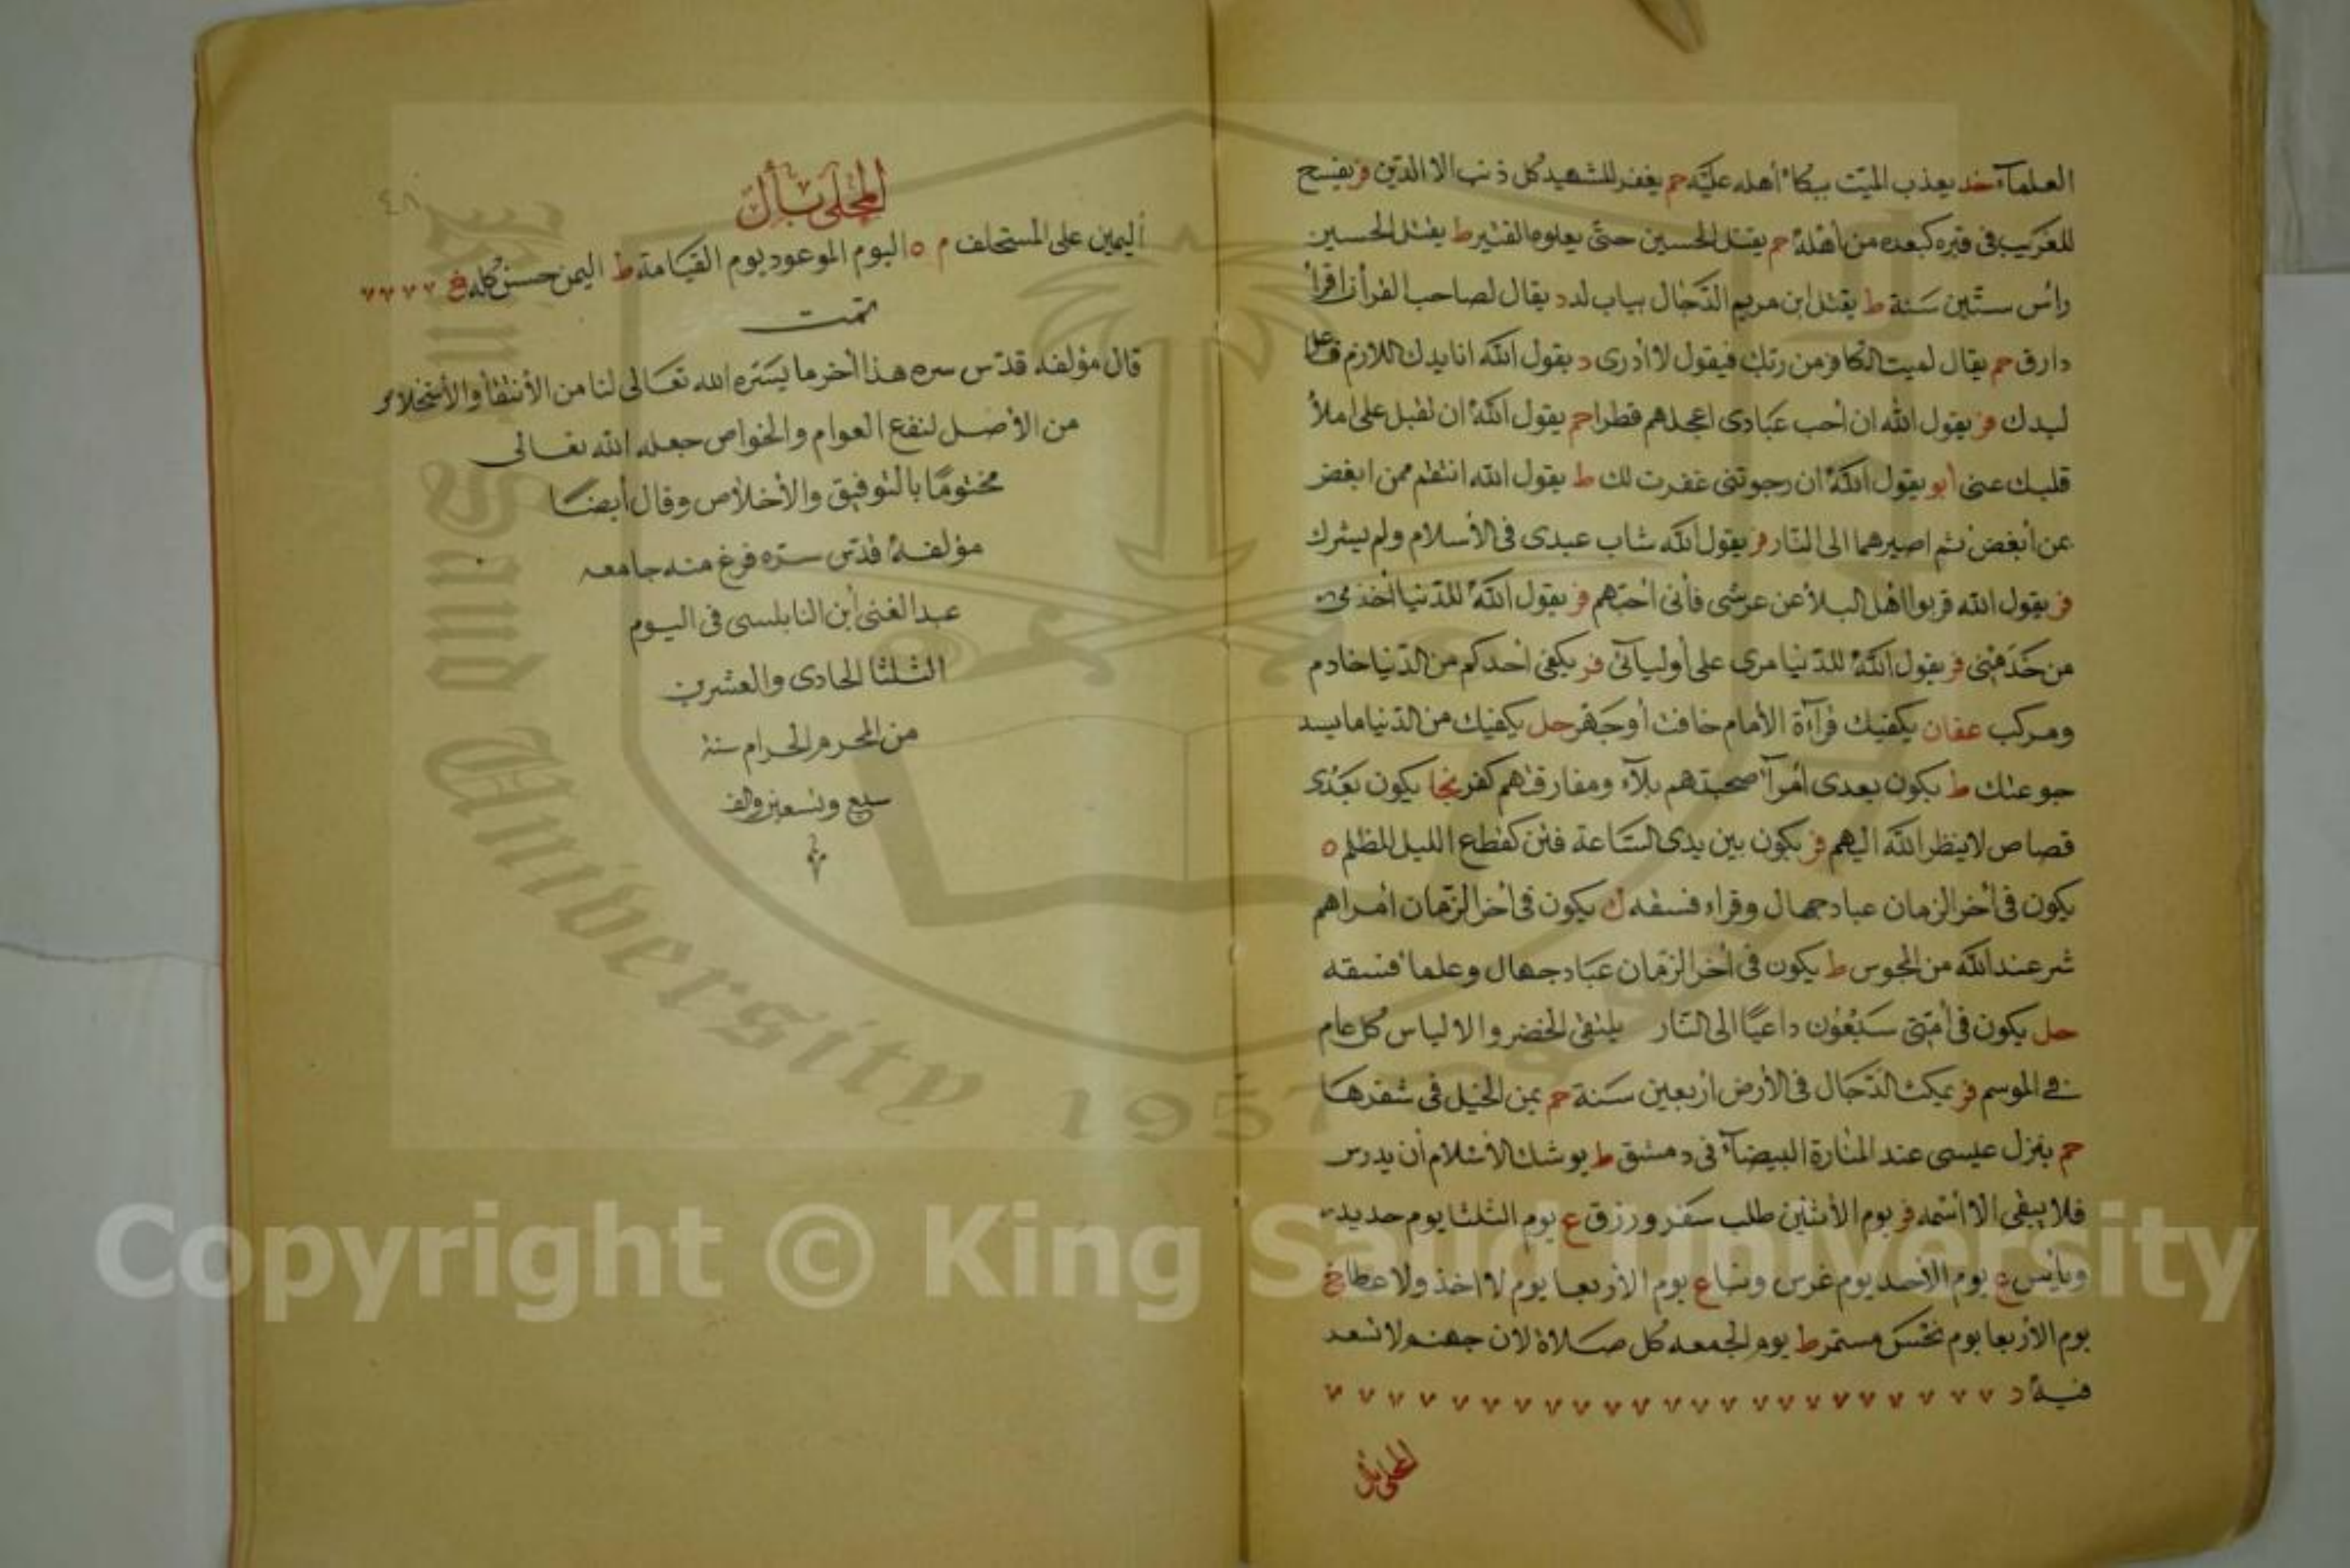 العلمآء خد يعذب الميت ببكاء أهله عليه حم يغفر للشهيد كل ذنب الا الدين فر يفسح
للغريب فى قبره كبعده من أهله حم يقتل الحسين حتى يعلوه القتير ط يقتل الحسين
رأس ستين سنة ط يقتل ابن مريم الدجال بباب لد د يقال لصاحب القرأن اقرأ
دارق حم يقال لميت الكافر من ربك فيقول لا أدرى د يقول الله انا بدك اللازم
لبدك فر يقول الله ان أحب عبادى اعجلهم فطرا حم يقول الله ان تقبل على املأ
قلبك عنى ابو يقول الله ان رجوتنى غفرت لك ط يقول الله انتقم ممن ابغض
عن أبغض ثم اصيرهما الى النار فر يقول الله شاب عبدى فى الأسلام ولم يشرك
فر يقول الله قربوا اهل البلأ عن عرشى فأنى أحبهم فر يقول الله للدنيا أخذمى
من خدمنى فر يقول الله للدنيا مرى على أوليآئى فر يكفى أحدكم من الدنيا خادم
ومركب عفان يكفيك قرآءة الأمام خافت أوجهر حل يكفيك من الدنيا ما يسد
جوعتك ط يكون بعدى أمرآء صحبتهم بلآء ومفارقتهم كفر نجا يكون بعدى
قصاص لا ينظر الله اليهم فر يكون بين يدى الساعة فتن كقطع الليل المظلم ه
يكون فى أخر الزمان عباد جهال وقراء فسقه ك يكون فى أخر الزمان أمراهم
شر عند الله من المجوس ط يكون فى أخر الزمان عباد جهال وعلماء فسقه
حل يكون فى أمتى سبعون داعيا الى النار يلتقى الخضر والالياس كل عام
فى الموسم فر يمكث الدجال فى الأرض أربعين سنة حم يمن الخيل فى شقرها
حم ينزل عيسى عند المنارة البيضآء فى دمشق ط يوشك الأسلام أن يدرس
فلا يبقى الا أسمه فر يوم الأثنين طلب سفر ورزق ع يوم الثلثا يوم حديد
وبأس ع يوم الأحد يوم غرس وبنا ع يوم الأربعا يوم لا اخذ ولا عطا خ
يوم الأربعا يوم نحس مستمر ط يوم الجمعه كل صلاة لان جهنم لا تسعر
فيه د
المحلى بأل
المحلى بأل
أليمين على المستحلف م ه اليوم الموعود يوم القيامة ط اليمن حسن كله خ
تمت
قال مؤلفه قدس سره هذا أخر ما يسره الله تعالى لنا من الأنتقأ والأستخلام
من الأصل لنفع العوام والخواص جعله الله تعالى
مختوما بالتوفيق والأخلاص وقال أيضا
مؤلفه قدس سره فرغ منه جامعه
عبد الغنى أبن النابلسى فى اليوم
الثلثا الحادى والعشرين
من المحرم الحرام سنة
سبع وتسعين والف
٤٨
King Saud University
1957
Copyright © King Saud University